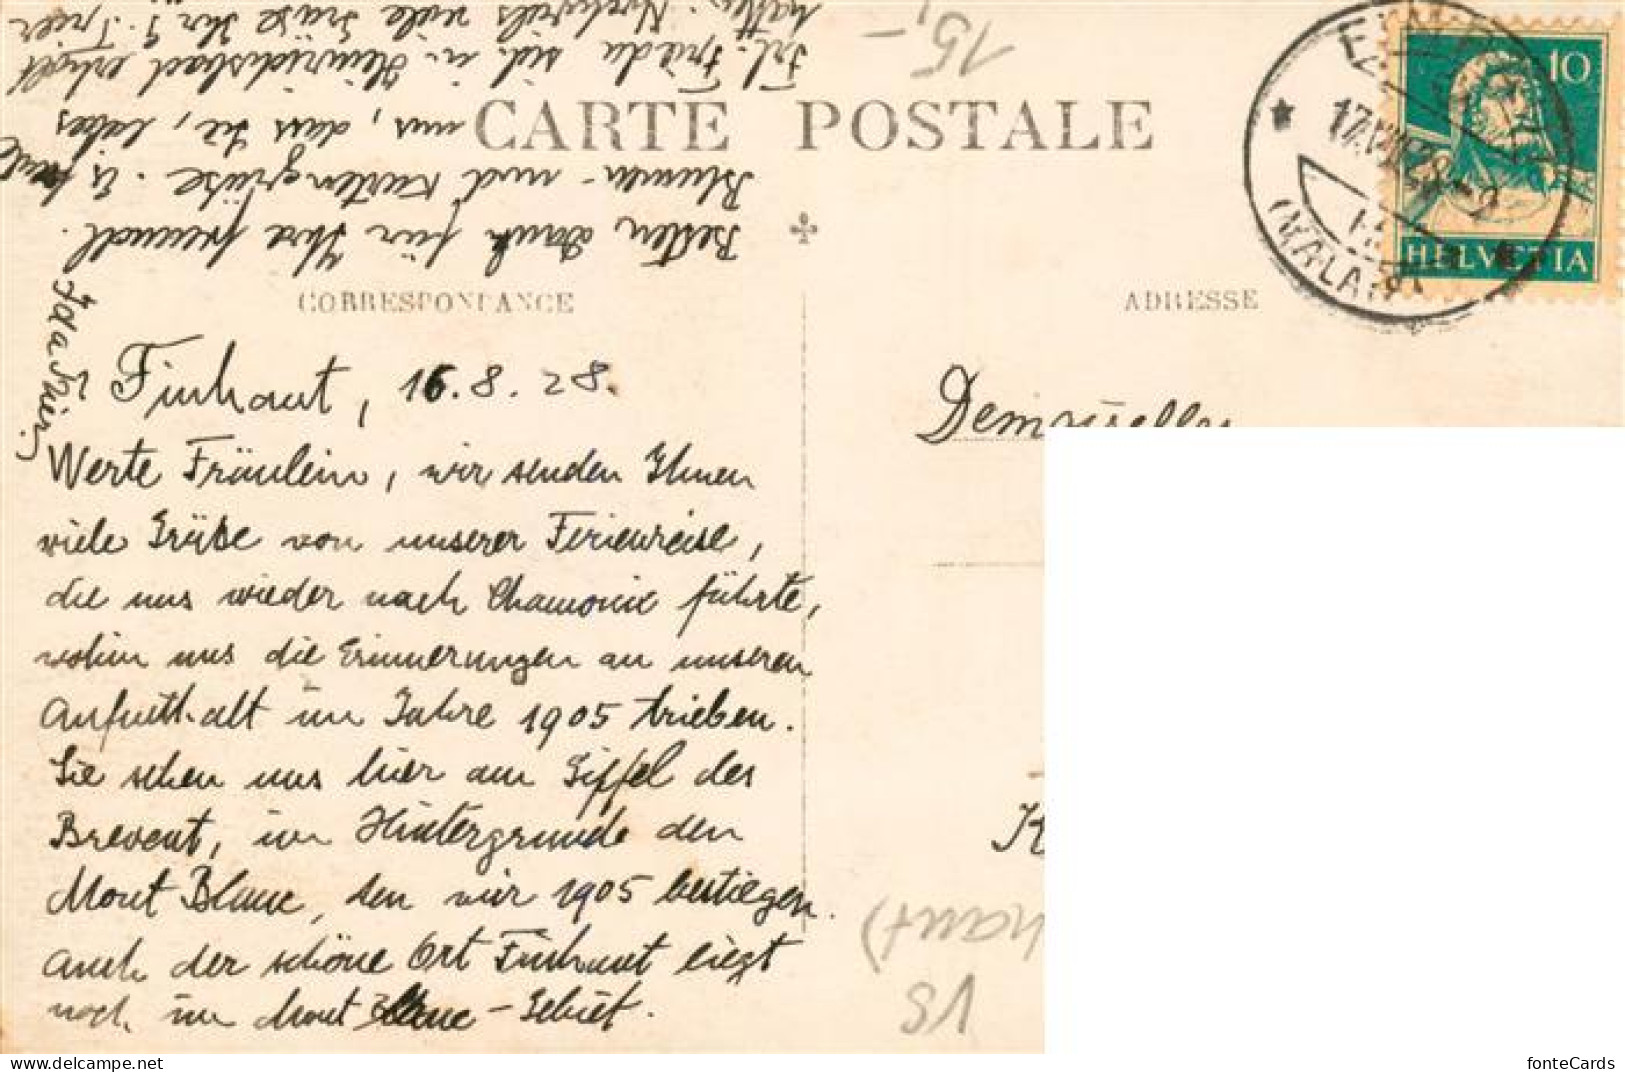 15,-
CARTE POSTALE
CORRESPONDANCE
ADRESSE
10
HELVETIA
17.VIII.28
(VALAIS)
Finhaut, 16.8.28.
Werte Fräulein, wir senden Ihnen
viele Grüße von unserer Ferienreise,
die uns wieder nach Chamonix führte,
wohin uns die Erinnerungen an unseren
Aufenthalt im Jahre 1905 trieben.
Sie sehen uns hier am Gipfel des
Brevent, im Hintergrunde den
Mont Blanc, den wir 1905 bestiegen.
Auch der schöne Ort Finhaut liegt
noch im Mont Blanc-Gebiet.
Besten Dank für Ihre freundl.
Blumen- und Kartengrüße. Es freut
uns, dass Sie, liebes
Frl. Frieda sich in Heinrichsbad erholt
hatten. Nochmals viele Grüße Ihr
Ida
Demoiselles
K
haut)
S1
fonteCards